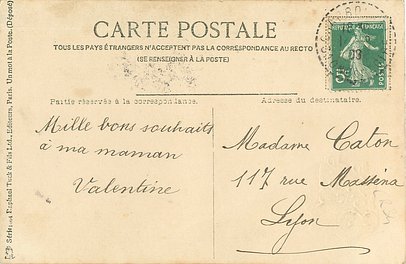 CARTE POSTALE
TOUS LES PAYS ÉTRANGERS N'ACCEPTENT PAS LA CORRESPONDANCE AU RECTO
(SE RENSEIGNER À LA POSTE)
Partie réservée à la correspondance.
Adresse du destinataire.
Mille bons souhaits
à ma maman
Valentine
Madame Caton
117 rue Masséna
Lyon
5c
POSTES
09
Raphael Tuck & Fils Ltd., Editeurs, Paris. Un mot à la Poste. (Déposé)